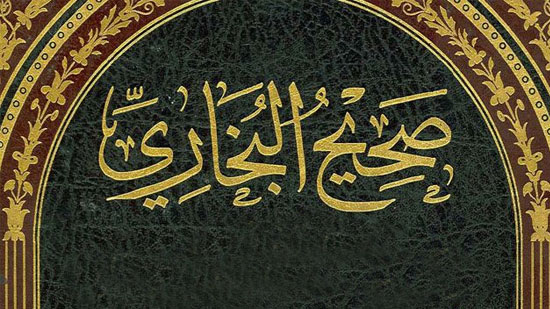 صَحِيْحُ البُخَارِيِّ